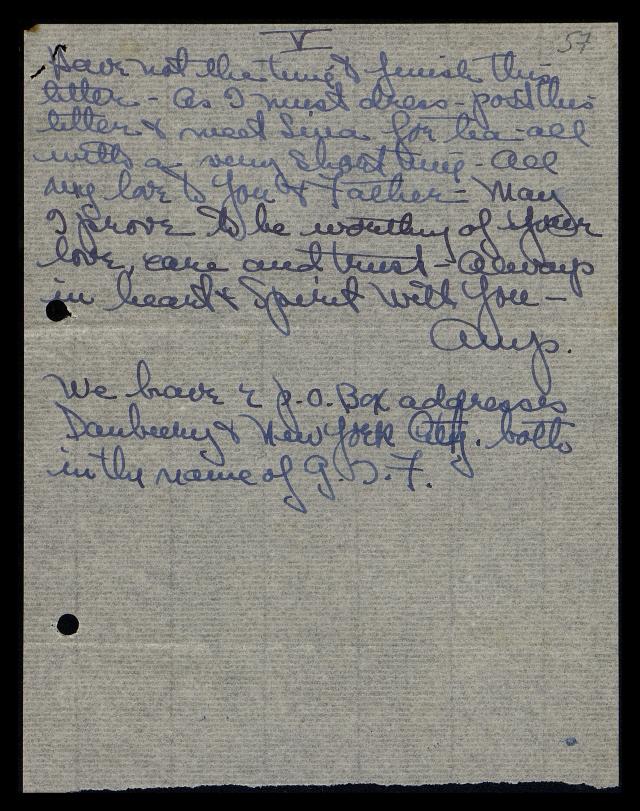 V
57
Have not the time to finish this
letter - as I must dress - post this
letter & meet Lina for tea - all
with a very short time - All
my love to You & Father - May
I prove to be worthy of your
love, care and trust - Always
in heart & Spirit With You -
Amy.
We have 2 P.O. Box addresses
Danbury & New York City. both
in the name of G.